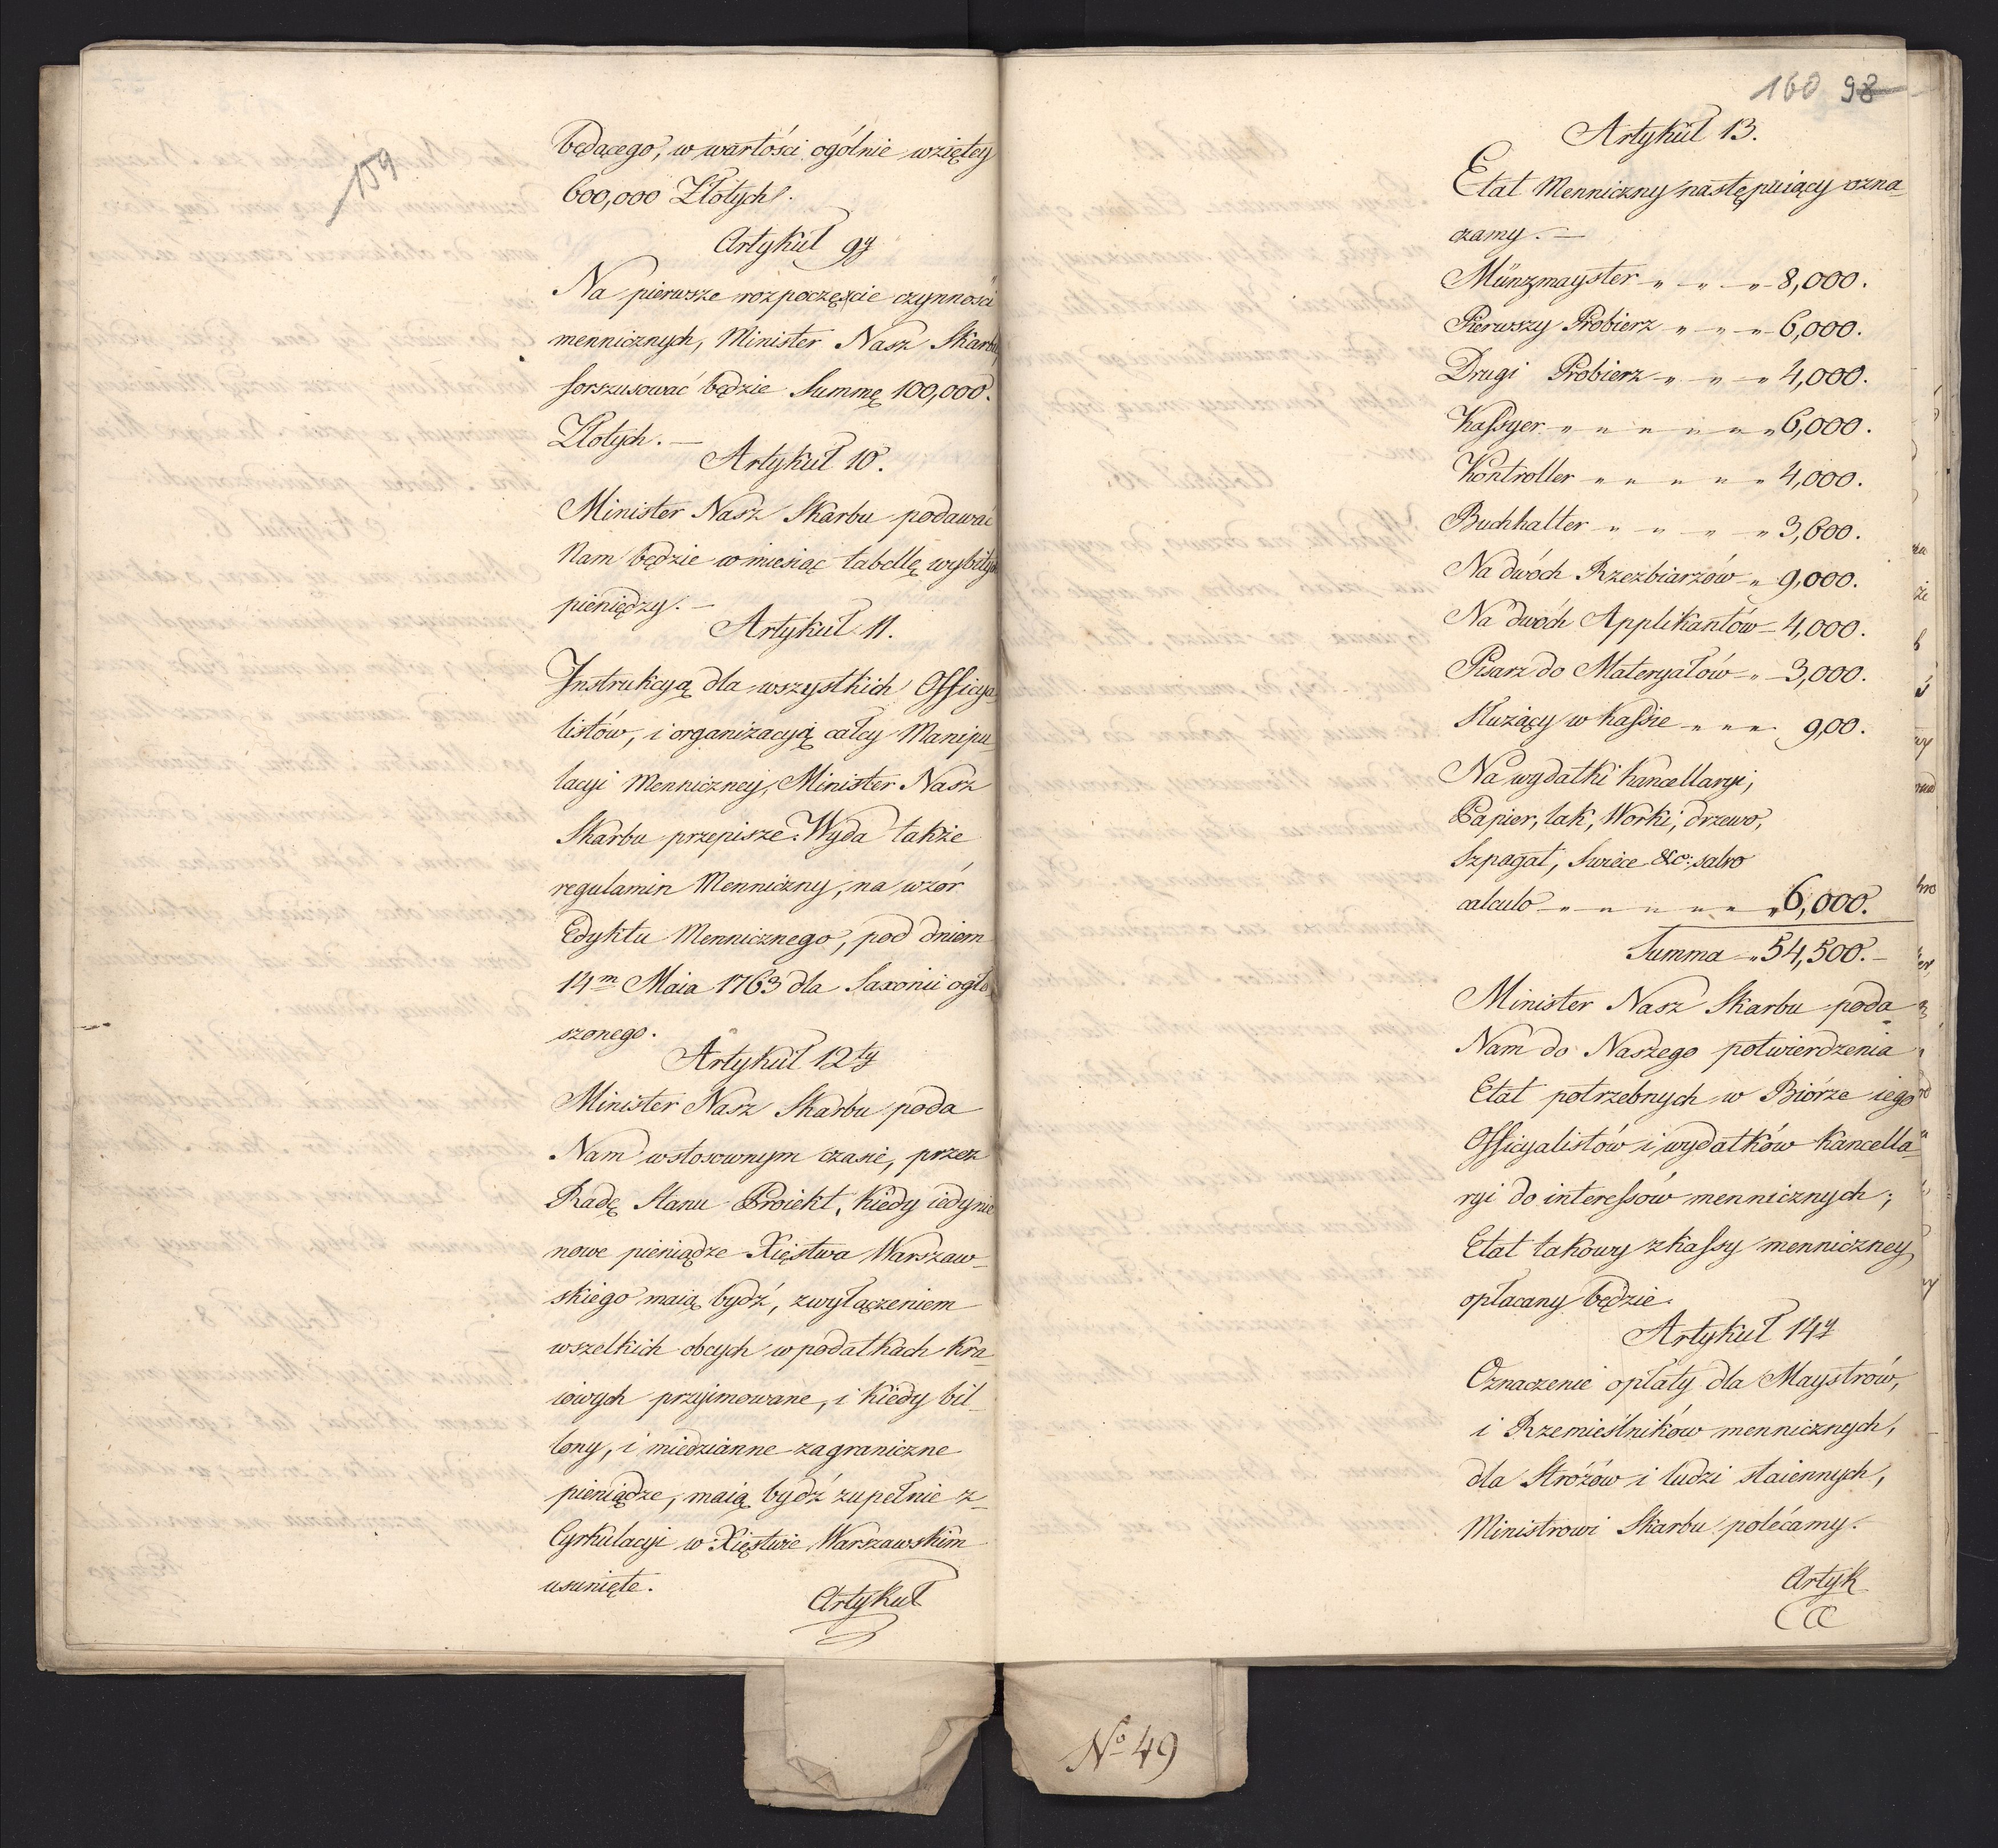 159
będącego, w wartości ogólnie wziętey
600,000 Złotych.
Artykuł 9y
Na pierwsze rozpoczęcie czynności
mennicznych, Minister Nasz Skarbu
forszusować będzie Summę 100,000.
Złotych. —
Artykuł 10.
Minister Nasz Skarbu podawać
Nam będzie w miesiąc tabellę wybitych
pieniędzy. —
Artykuł 11.
Instrukcyą dla wszystkich Officya-
listów, i organizacyą całey Manipu-
lacyi Menniczney, Minister Nasz
Skarbu przepisze. Wyda także
regulamin Menniczny, na wzór
Edyktu Mennicznego, pod dniem
14m Maia 1763 dla Saxonii ogło-
szonego.
Artykuł 12ty
Minister Nasz Skarbu poda
Nam w stosownym czasie, przez
Radę Stanu Proiekt, kiedy iedynie
nowe pieniądze Xięstwa Warszaw-
skiego maią bydź, z wyłączeniem
wszelkich obcych w podatkach kra-
iowych przyimowane, i kiedy bil-
lony, i miedzianne zagraniczne
pieniądze, maią bydź zupełnie z-
Cyrkulacyi w Xięstwie Warszawskim
usunięte.
Artykuł
160 98
Artykuł 13.
Etat Menniczny następuiący ozna-
czamy. —
Münzmayster „ „ „ 8,000.
Pierwszy Probierz „ „ „ 6,000.
Drugi Probierz „ „ „ 4,000.
Kassyer „ „ „ „ „ „ 6,000.
Kontroller „ „ „ „ „ 4,000.
Buchhalter „ „ „ „ 3,600.
Na dwóch Rzezbiarzów „ 9,000.
Na dwóch Applikantów - 4,000.
Pisarz do Materyałów „ 3,000.
Służący w kassie „ „ „ 900.
Na wydatki kancellaryi,
Papier, lak, Worki, drzewo,
Szpagat, Swiéce &c: salvo
calculo „ „ „ „ „ „ 6,000.
Summa „ 54,500. —
Minister Nasz Skarbu poda
Nam do Naszego potwierdzenia
Etat potrzebnych w Biórze iego
Officyalistów i wydatków kancella-
ryi do interessów mennicznych;
Etat takowy z kassy menniczney
opłacany będzie.
Artykuł 14y
Oznaczenie opłaty dla Maystrów,
i Rzemieślników mennicznych,
dla Stróżów i ludzi staiennych,
Ministrowi Skarbu polécamy.
Artyk
No 49